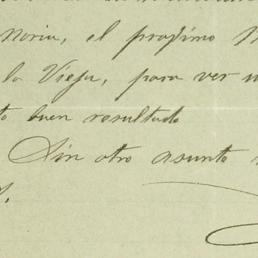 Noria, el proximo
la Vieja, para ver
to buen resultado
Sin otro asunto